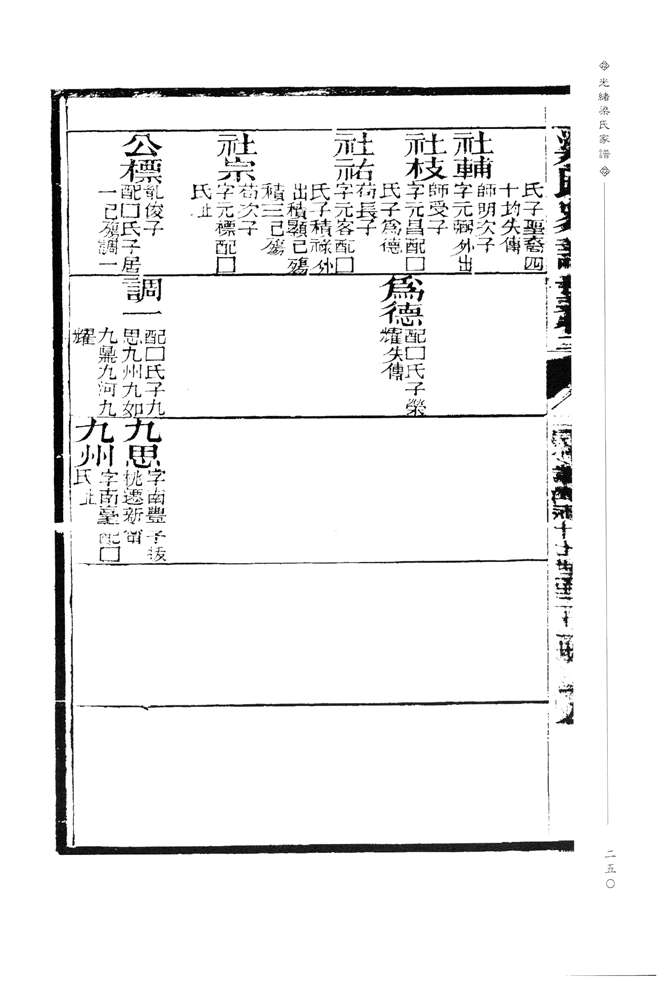 光緒梁氏家譜
二五〇
氏子聖裔四
十均失傳
社輔
師明次子
字元弼外出
社枝
師受子
字元昌配囗
氏子為德
社祐
荀長子
字元容配囗
氏子積祿外
出積顯已殤
積三已殤
社宗
荀次子
字元標配囗
氏止
公標
亂俊子
配囗氏子居
一已殤調一
為德
配囗氏子榮
耀失傳
調一
配囗氏子九
思九州九如
九鼎九河九
耀
九思
字南豐子拔
桃遷新甯
九州
字南臺配囗
氏止